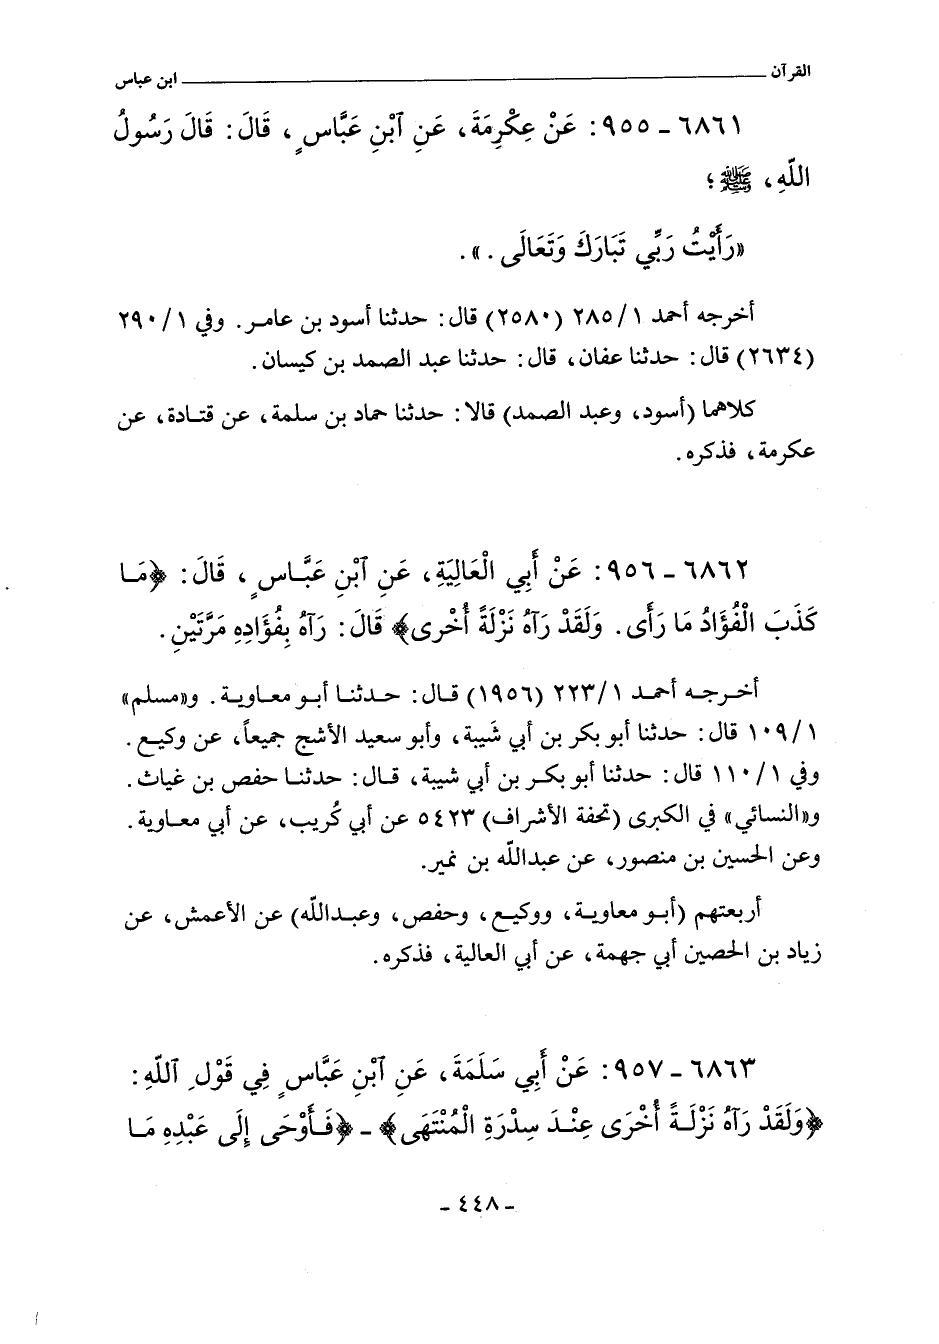 القرآن ـــــــــــــــــــــــــــــــــــــــــــــــــــــــــــــــــ ابن عباس
٦٨٦١ - ٩٥٥: عَنْ عِكْرِمَةَ، عَنِ ٱبْنِ عَبَّاسٍ، قَالَ: قَالَ رَسُولُ
اللّهِ، ﷺ؛
«رَأَيْتُ رَبِّي تَبَارَكَ وَتَعَالَى.».
أخرجه أحمد ١/٢٨٥ (٢٥٨٠) قال: حدثنا أسود بن عامر. وفي ١/٢٩٠
(٢٦٣٤) قال: حدثنا عفان، قال: حدثنا عبد الصمد بن كيسان.
كلاهما (أسود، وعبد الصمد) قالا: حدثنا حماد بن سلمة، عن قتادة، عن
عكرمة، فذكره.
٦٨٦٢ - ٩٥٦: عَنْ أَبِي الْعَالِيَةِ، عَنِ ٱبْنِ عَبَّاسٍ، قَالَ: ﴿مَا
كَذَبَ الْفُؤَادُ مَا رَأَى. وَلَقَدْ رَآهُ نَزْلَةً أُخْرى﴾ قَالَ: رَآهُ بِفُؤَادِهِ مَرَّتَيْنِ.
أخرجه أحمد ١/٢٢٣ (١٩٥٦) قال: حدثنا أبو معاوية. و«مسلم»
١/١٠٩ قال: حدثنا أبو بكر بن أبي شَيبة، وأبو سعيد الأشج جميعاً، عن وكيع.
وفي ١/١١٠ قال: حدثنا أبو بكر بن أبي شيبة، قال: حدثنا حفص بن غياث.
و«النسائي» في الكبرى (تحفة الأشراف) ٥٤٢٣ عن أبي كُريب، عن أبي معاوية.
وعن الحسين بن منصور، عن عبداللّه بن نمير.
أربعتهم (أبو معاوية، ووكيع، وحفص، وعبداللّه) عن الأعمش، عن
زياد بن الحصين أبي جهمة، عن أبي العالية، فذكره.
٦٨٦٣ - ٩٥٧: عَنْ أَبِي سَلَمَةَ، عَنِ ٱبْنِ عَبَّاسٍ فِي قَوْلِ ٱللّهِ:
﴿وَلَقَدْ رَآهُ نَزْلَةً أُخْرَى عِنْدَ سِدْرَةِ الْمُنْتَهَى﴾ - ﴿فَأَوْحَى إِلَى عَبْدِهِ مَا
- ٤٤٨ -